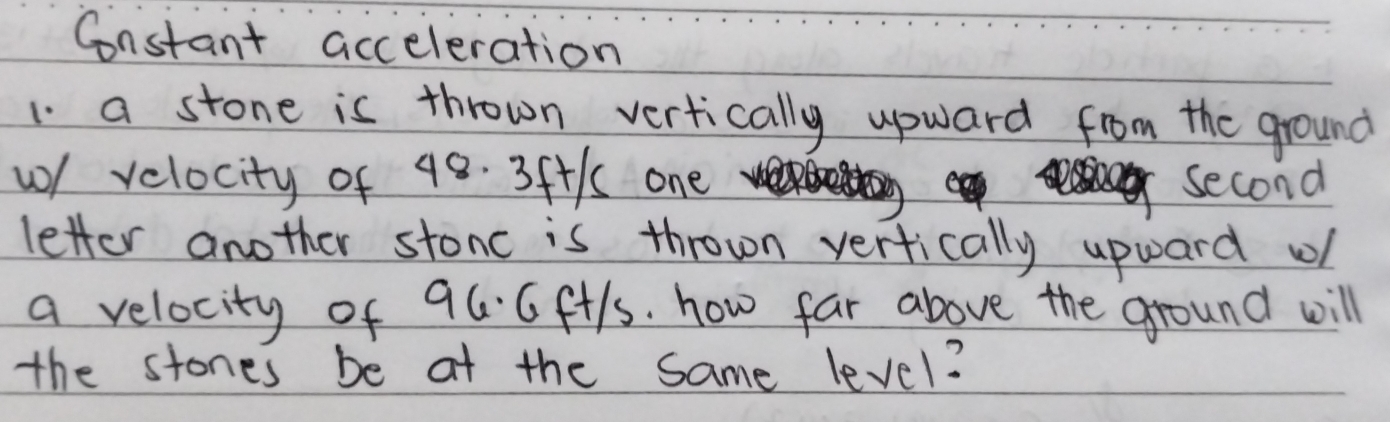 Constant acceleration
1. a stone is thrown vertically upward from the ground
w/ velocity of 48.3ft/s one second
letter another stone is thrown vertically upward w/
a velocity of 96.6 ft/s. how far above the ground will
the stones be at the same level?